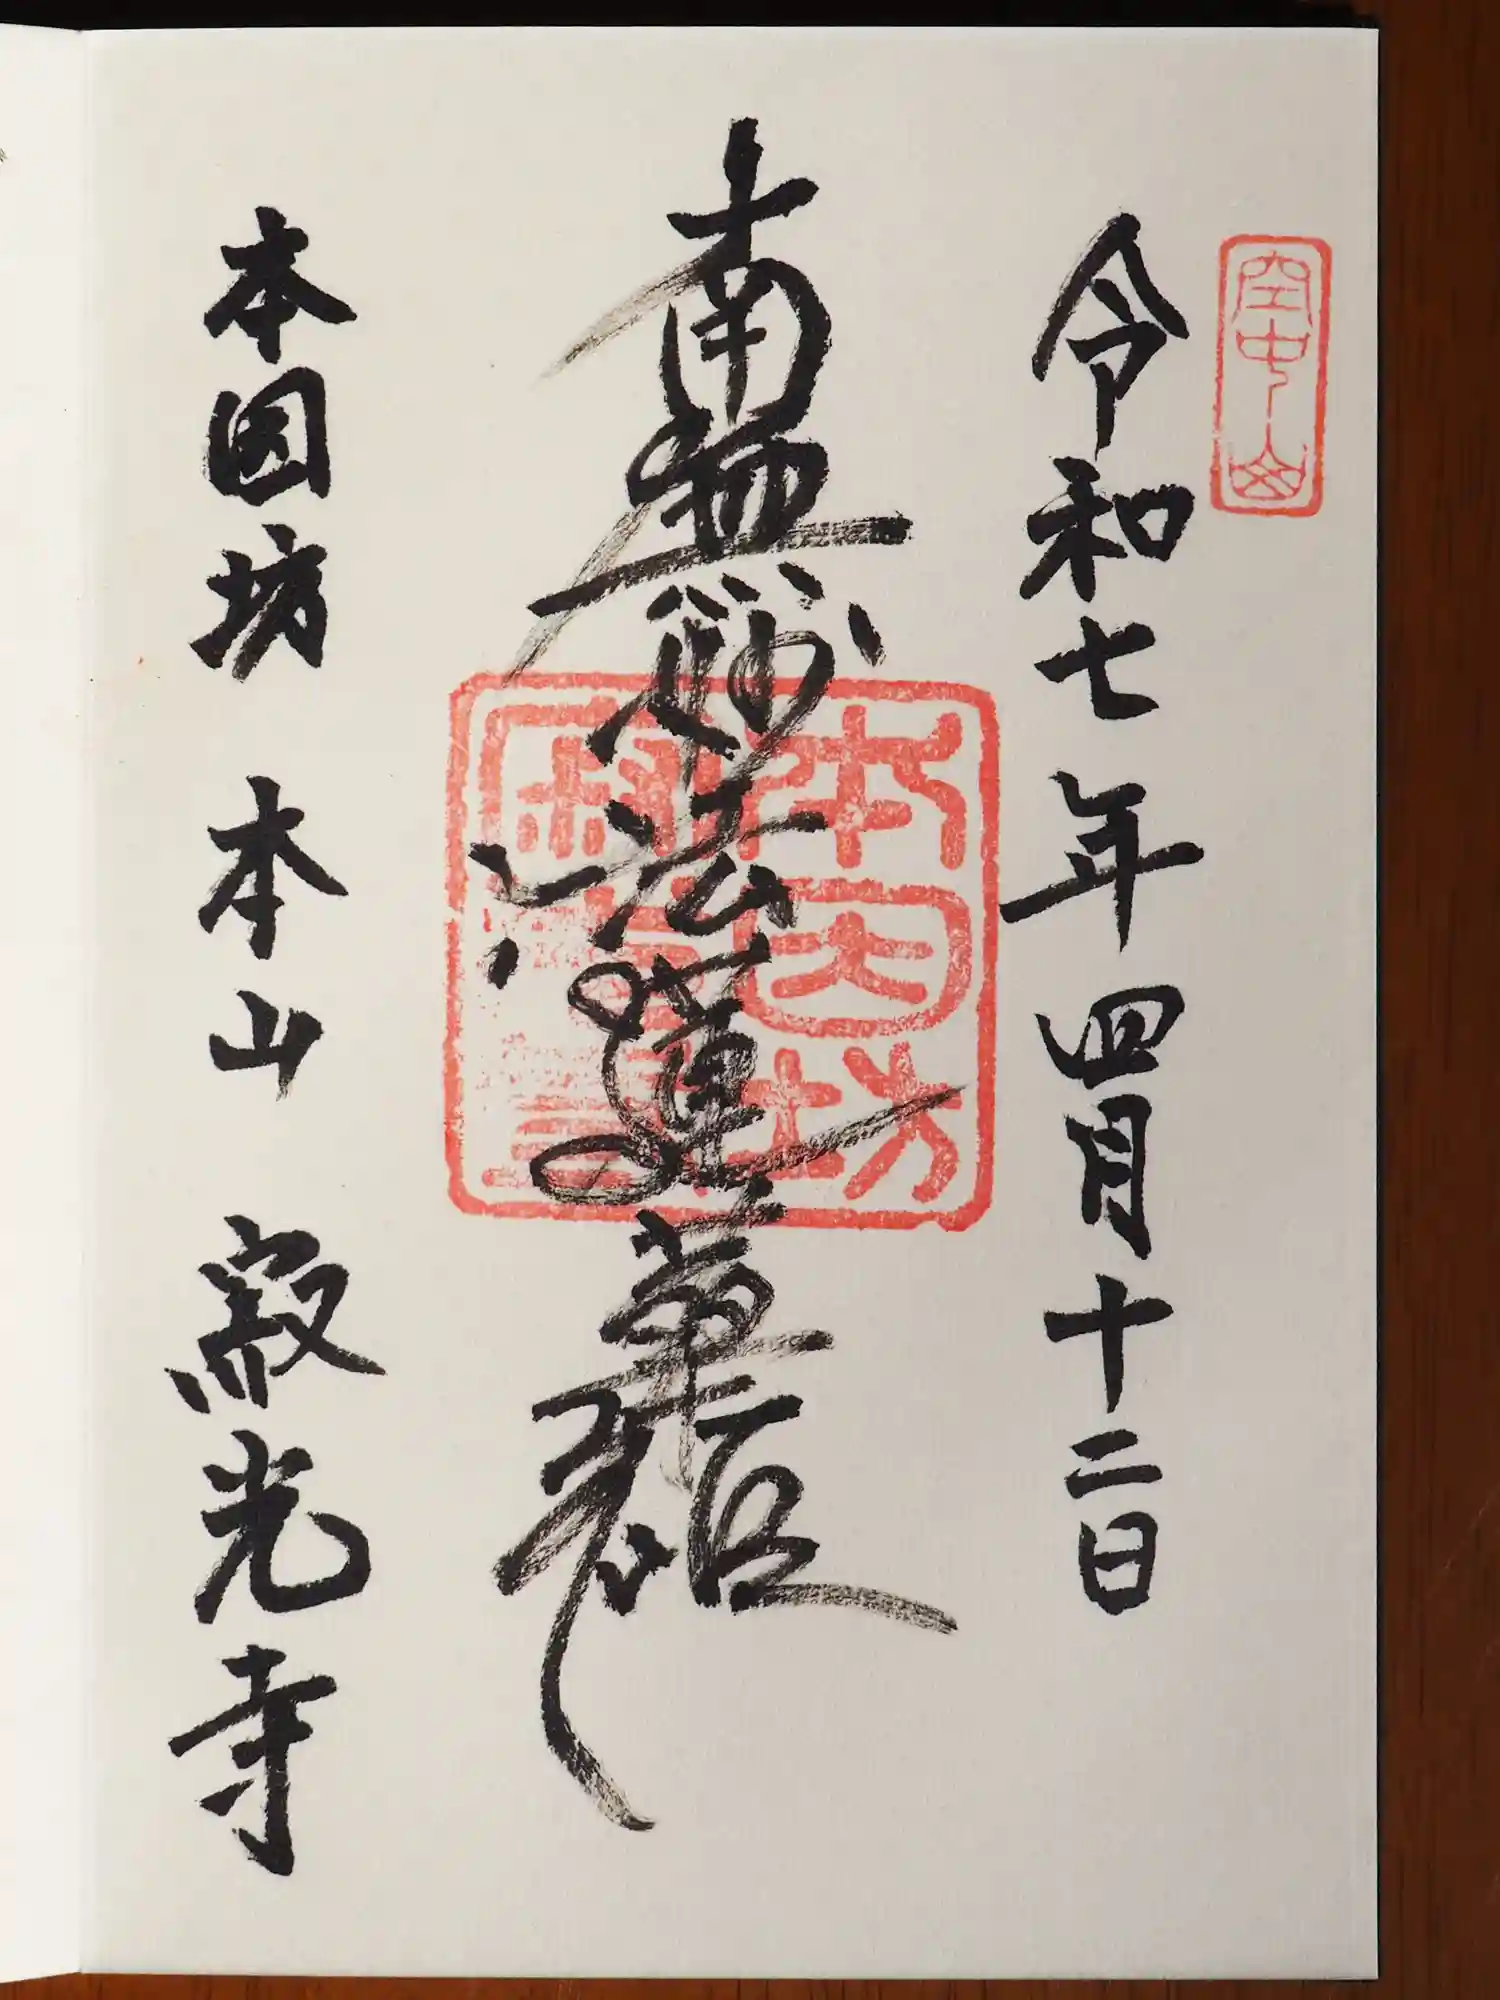 空中山
令和七年四月十二日
南無妙法蓮華経
本因坊
本因坊 本山 寂光寺